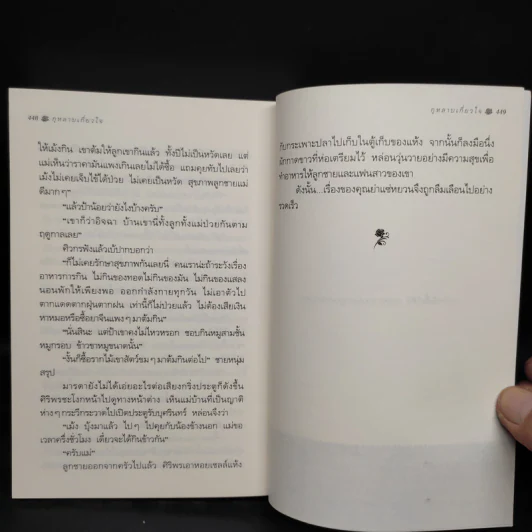 448 กุหลาบเกี่ยวใจ
ให้เม้งกิน เขาต้มให้ลูกเขากินแล้ว ทั้งปีไม่เป็นหวัดเลย แต่
แม่เห็นว่าราคามันแพงเกินเลยไม่ได้ซื้อ แถมคุยทับไปเลยว่า
เม้งไม่เคยเจ็บไข้ได้ป่วย ไม่เคยเป็นหวัด สุขภาพลูกชายแม่
ดีมากๆ"
"แล้วป้าน้อยว่ายังไงบ้างครับ"
"เขาก็ว่าอิจฉา บ้านเขานี่ทั้งลูกทั้งแม่ป่วยกันตาม
ฤดูกาลเลย"
ศิวกรฟังแล้วเบ้ปากบอกว่า
"ก็ไม่เคยรักษาสุขภาพกันเลยนี่ คนเราน่ะถ้าระวังเรื่อง
อาหารการกิน ไม่กินของทอดไม่กินของมัน ไม่กินของแสลง
นอนพักให้เพียงพอ ออกกำลังกายทุกวัน ไม่เอาตัวไป
ตากแดดตากฝุ่นตากฝน เท่านี้ก็ไม่ป่วยแล้ว ไม่ต้องเสียเงิน
หาหมอหรือซื้อยาจีนแพงๆ มาต้มกิน"
"นั่นสินะ แต่ป้าเขาคงไม่ไหวหรอก ชอบกินหมูสามชั้น
หมูกรอบ ข้าวขาหมูขนาดนั้น"
"งั้นก็ซื้อรากไม้เขาสัตว์ขมๆ มาต้มกินต่อไป" ชายหนุ่ม
สรุป
มารดายังไม่ได้เอ่ยอะไรต่อเสียงกริ่งประตูก็ดังขึ้น
ศิริพรชะโงกหน้าไปดูทางหน้าต่าง เห็นแม่บ้านที่เป็นญาติ
ห่างๆ กระวีกระวาดไปเปิดประตูรับบุศรินทร์ หล่อนจึงว่า
"เม้ง บุ้งมาแล้ว ไปๆ ไปคุยกับน้องข้างนอก แม่ขอ
เวลาครึ่งชั่วโมง เดี๋ยวจะได้กินข้าวกัน"
"ครับแม่"
ลูกชายออกจากครัวไปแล้ว ศิริพรเอาหอยเชลล์แห้ง
กุหลาบเกี่ยวใจ 449
กับกระเพาะปลาไปเก็บในตู้เก็บของแห้ง จากนั้นก็ลงมือนึ่ง
ผักกาดขาวที่ห่อเตรียมไว้ หล่อนวุ่นวายอย่างมีความสุขเพื่อ
ทำอาหารให้ลูกชายและแฟนสาวของเขา
ดังนั้น...เรื่องของคุณย่าแซ่หยวนจึงถูกลืมเลือนไปอย่าง
รวดเร็ว